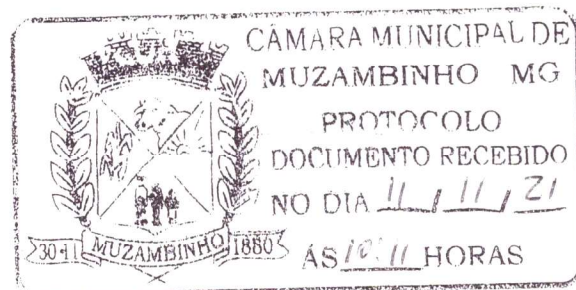 CÂMARA MUNICIPAL DE
MUZAMBINHO MG
PROTOCOLO
DOCUMENTO RECEBIDO
NO DIA 11 / 11 / 21
ÁS 10:11 HORAS
30-11 MUZAMBINHO 1880